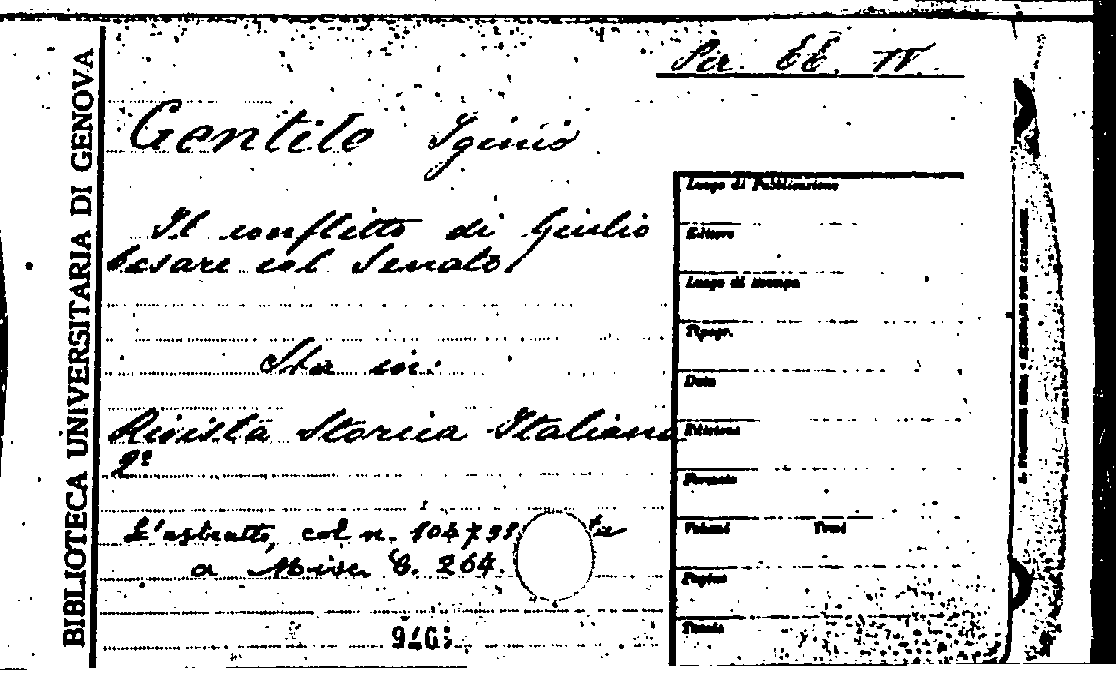 BIBLIOTECA UNIVERSITARIA DI GENOVA
Per. EE. IV.
Gentile Iginio
Il conflitto di Giulio
Cesare col Senato.
Sta in:
Rivista Storica Italiana
2º
L'estratto, col n. 104798, sta
a Misc. B. 264.
Luogo di Pubblicazione
Editore
Luogo di stampa
Tipogr.
Data
Edizione
Formato
Volumi Tomi
Pagine
Tavole